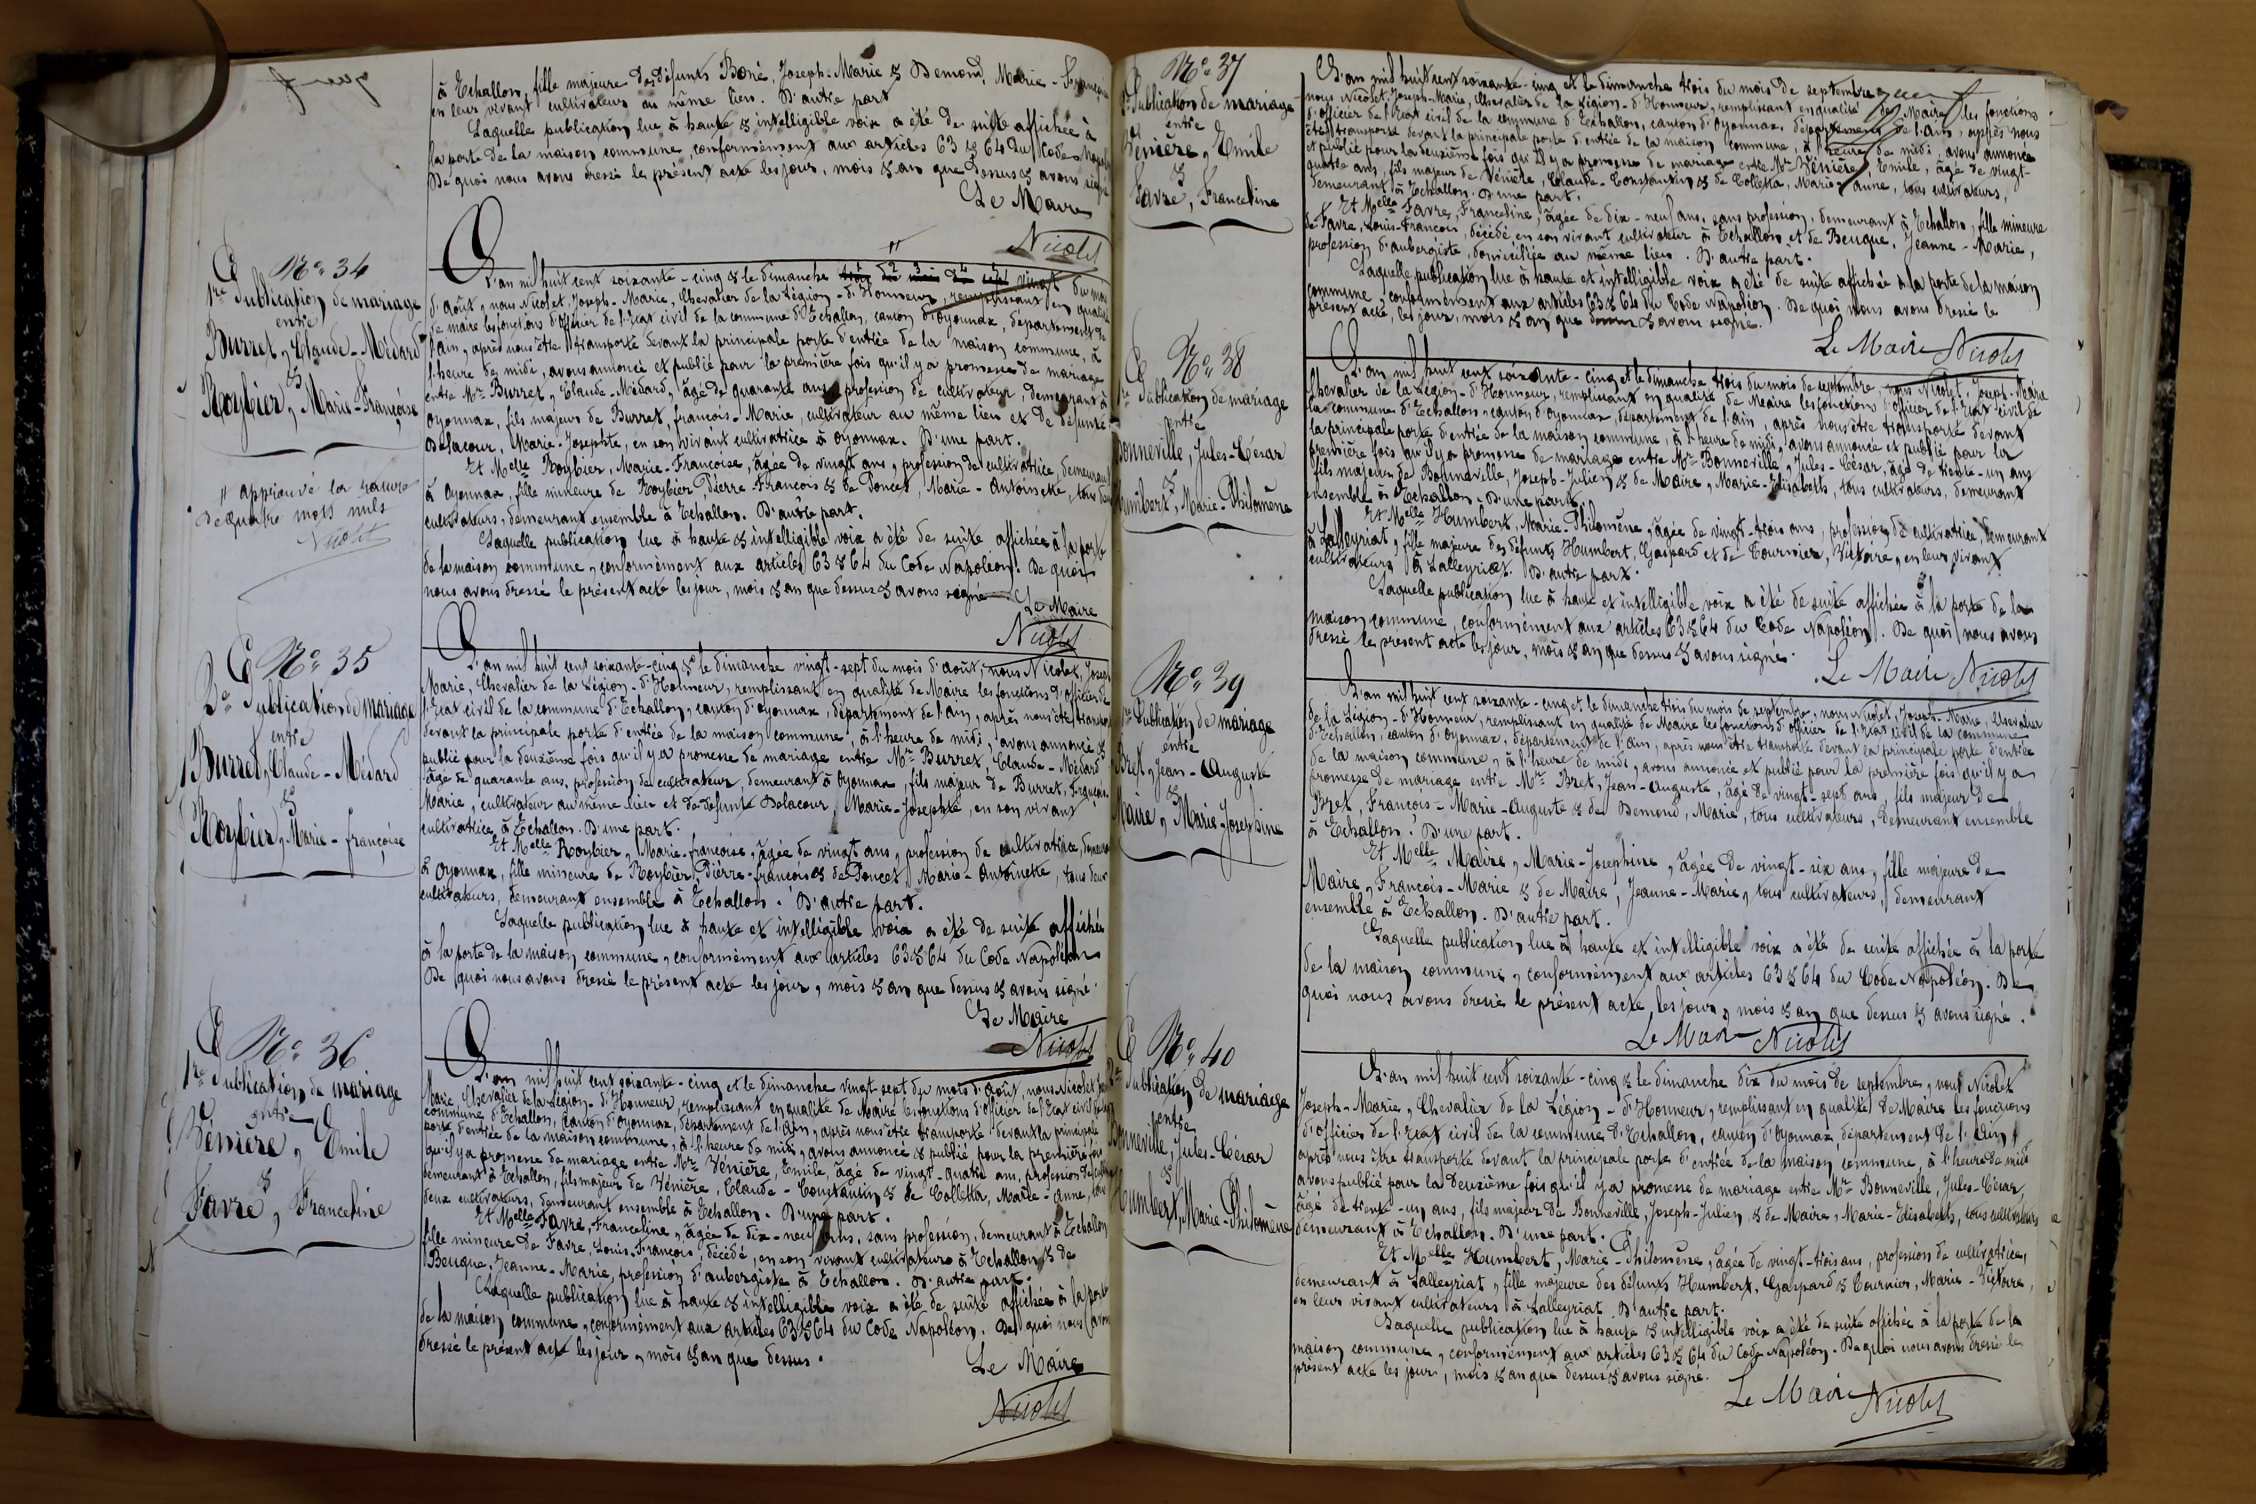 à Echallon, fille majeure des défunts Boné, Joseph-Marie & Demond, Marie-Françoise
en leurs vivant cultivateurs au même lieu. D'autre part
Laquelle publication lue à haute & intelligible voix a été de suite affichée à
la porte de la maison commune, conformément aux articles 63 & 64 du Code Napoléon
De quoi nous avons dressé le présent acte les jour, mois & an que dessus & avons signé
Le Maire
Nicolet
N° 34
1re Publication de mariage
entre
Burret, Claude-Médard
&
Roybier, Marie-Françoise
" approuvé la rature
de quatre mots nuls
Nicolet
L'an mil huit cent soixante-cinq & le dimanche vingt du mois
d'août, nous Nicolet, Joseph-Marie, Chevalier de la Légion-d'Honneur, remplissant en qualité
de maire les fonctions d'officier de l'Etat civil de la commune d'Echallon, canton d'Oyonnax, département de
l'ain, après nous être transporté devant la principale porte d'entrée de la maison commune, à
l'heure de midi, avons annoncé et publié pour la première fois qu'il y a promesse de mariage
entre Mr Burret, Claude-Médard, âgé de quarante ans, profession de cultivateur, demeurant à
Oyonnax, fils majeur de Burret, françois-Marie, cultivateur au même lieu et de défunte
Delacour, Marie-Josephte, en son vivant cultivatrice à Oyonnax. D'une part.
Et Melle Roybier, Marie-Françoise, âgée de vingt ans, profession de cultivatrice, demeurant
à Oyonnax, fille mineure de Roybier Pierre-François & de Poncet, Marie-Antoinette, tous deux
cultivateurs, demeurant ensemble à Echallon. D'autre part.
Laquelle publication lue à haute & intelligible voix a été de suite affichée à la porte
de la maison commune, conformément aux articles 63 & 64 du Code Napoléon. De quoi
nous avons dressé le présent acte les jour, mois & an que dessus & avons signé
Le Maire
Nicolet
N° 35
2e Publication de mariage
entre
Burret, Claude-Médard
&
Roybier, Marie-françoise
L'an mil huit cent soixante-cinq & le dimanche vingt-sept du mois d'août, nous Nicolet, Joseph
Marie, Chevalier de la Légion-d'Honneur, remplissant en qualité de Maire les fonctions d'officier de
l'Etat civil de la commune d'Echallon, canton d'Oyonnax, département de l'ain, après nous être transporté
devant la principale porte d'entrée de la maison commune, à l'heure de midi, avons annoncé &
publié pour la deuxième fois qu'il y a promesse de mariage entre Mr Burret, Claude-Médard
âgé de quarante ans, profession de cultivateur, demeurant à Oyonnax, fils majeur de Burret, François
Marie, cultivateur au même lieu et de défunte Delacour, Marie-Josephte, en son vivant
cultivatrice à Echallon. D'une part.
Et Melle Roybier, Marie-françoise, âgée de vingt ans, profession de cultivatrice, demeurant
à Oyonnax, fille mineure de Roybier, Pierre-françois & de Poncet Marie-Antoinette, tous deux
cultivateurs, demeurant ensemble à Echallon. D'autre part.
Laquelle publication lue à haute et intelligible voix a été de suite affichée
à la porte de la maison commune, conformément aux articles 63 & 64 du Code Napoléon
De quoi nous avons dressé le présent acte les jour, mois & an que dessus & avons signé.
Le Maire
Nicolet
N° 36
1re Publication de mariage
entre
Vénière, Emile
&
Favre, Franceline
L'an mil huit cent soixante-cinq et le dimanche vingt-sept du mois d'août, nous Nicolet Joseph
Marie, Chevalier de la Légion-d'Honneur, remplissant en qualité de Maire les fonctions d'officier de l'Etat civil de la
commune d'Echallon, canton d'Oyonnax, département de l'ain, après nous être transporté devant la principale
porte d'entrée de la maison commune, à l'heure de midi, avons annoncé & publié pour la première fois
qu'il y a promesse de mariage entre Mr Vénière, Emile, âgé de vingt-quatre ans, profession de cultivateur
demeurant à Echallon, fils majeur de Vénière, Claude-Constantin & de Colletta, Marie-Anne, tous
deux cultivateurs, demeurant ensemble à Echallon. D'une part.
Et Melle Favre, Franceline, âgée de dix-neuf ans, sans profession, demeurant à Echallon
fille mineure de Favre, Louis-François, décédé, en son vivant cultivateur à Echallon & de
Beuque, Jeanne-Marie, profession d'aubergiste à Echallon. D'autre part.
Laquelle publication lue à haute & intelligible voix a été de suite affichée à la porte
de la maison commune, conformément aux articles 63 & 64 du Code Napoléon. De quoi nous avons
dressé le présent acte les jour, mois & an que dessus.
Le Maire
Nicolet
N° 37
2e Publication de mariage
entre
Vénière, Emile
&
Favre, Franceline
L'an mil huit cent soixante-cinq et le dimanche trois du mois de septembre
nous Nicolet, Joseph-Marie, Chevalier de la Légion-d'Honneur, remplissant en qualité de Maire les fonctions
d'officier de l'Etat civil de la commune d'Echallon, canton d'Oyonnax, département de l'ain, après nous
être transporté devant la principale porte d'entrée de la maison commune, à l'heure de midi, avons annoncé
et publié pour la deuxième fois qu'il y a promesse de mariage entre Mr Vénière, Emile, âgé de vingt-
quatre ans, fils majeur de Vénière, Claude-Constantin & de Colletta, Marie-anne, tous cultivateurs,
demeurant à Echallon. D'une part.
Et Melle Favre, Franceline, âgée de dix-neuf ans, sans profession, demeurant à Echallon, fille mineure
de Favre, Louis-François, décédé en son vivant cultivateur à Echallon et de Beuque, Jeanne-Marie,
profession d'aubergiste, domiciliée au même lieu. D'autre part.
Laquelle publication lue à haute et intelligible voix a été de suite affichée à la porte de la maison
commune, conformément aux articles 63 & 64 du Code Napoléon. De quoi nous avons dressé le
présent acte, les jour, mois & an que dessus & avons signé.
Le Maire Nicolet
N° 38
1re Publication de mariage
entre
Bonneville, Jules-César
&
Humbert, Marie-Philomène
L'an mil huit cent soixante-cinq et le dimanche trois du mois de septembre, nous Nicolet, Joseph-Marie
Chevalier de la Légion-d'Honneur, remplissant en qualité de Maire les fonctions d'officier de l'Etat civil de
la commune d'Echallon, canton d'Oyonnax, département de l'ain, après nous être transporté devant
la principale porte d'entrée de la maison commune, à l'heure de midi, avons annoncé et publié pour la
première fois qu'il y a promesse de mariage entre Mr Bonneville, Jules-César, âgé de trente-un ans
fils majeur de Bonneville, Joseph-Julien & de Maire, Marie-Elisabeth, tous cultivateurs, demeurant
ensemble à Echallon. D'une part.
Et Melle Humbert, Marie-Philomène, âgée de vingt-trois ans, profession de cultivatrice, demeurant
à Lalleyriat, fille majeure des défunts Humbert, Gaspard et de Tournier, Victoire, en leurs vivant
cultivateurs à Lalleyriat. D'autre part.
Laquelle publication lue à haute et intelligible voix a été de suite affichée à la porte de la
maison commune, conformément aux articles 63 & 64 du Code Napoléon. De quoi nous avons
dressé le présent acte les jour, mois & an que dessus & avons signé.
Le Maire Nicolet
N° 39
1re Publication de mariage
entre
Bret, Jean-Auguste
&
Maire, Marie-Josephine
L'an mil huit cent soixante-cinq et le dimanche trois du mois de septembre, nous Nicolet, Joseph-Marie, Chevalier
de la Légion-d'Honneur, remplissant en qualité de Maire les fonctions d'officier de l'Etat civil de la commune
d'Echallon, canton d'Oyonnax, département de l'ain, après nous être transporté devant la principale porte d'entrée
de la maison commune, à l'heure de midi, avons annoncé et publié pour la première fois qu'il y a
promesse de mariage entre Mr Bret, Jean-Auguste, âgé de vingt-sept ans, fils majeur de
Bret, François-Marie-Auguste & de Demond, Marie, tous cultivateurs, demeurant ensemble
à Echallon. D'une part.
Et Melle Maire, Marie-Josephine, âgée de vingt-six ans, fille majeure de
Maire, François-Marie & de Maire, Jeanne-Marie, tous cultivateurs, demeurant
ensemble à Echallon. D'autre part.
Laquelle publication lue à haute et intelligible voix a été de suite affichée à la porte
de la maison commune, conformément aux articles 63 & 64 du Code Napoléon. De
quoi nous avons dressé le présent acte les jour, mois & an que dessus & avons signé.
Le Maire Nicolet
N° 40
2e Publication de mariage
entre
Bonneville, Jules-César
&
Humbert, Marie-Philomène
L'an mil huit cent soixante-cinq & le dimanche dix du mois de septembre, nous Nicolet
Joseph-Marie, Chevalier de la Légion-d'Honneur, remplissant en qualité de Maire les fonctions
d'officier de l'Etat civil de la commune d'Echallon, canton d'Oyonnax département de l'Ain
après nous être transporté devant la principale porte d'entrée de la maison commune, à l'heure de midi
avons publié pour la deuxième fois qu'il y a promesse de mariage entre Mr Bonneville, Jules-César,
âgé de trente-un ans, fils majeur de Bonneville, Joseph-Julien & de Maire, Marie-Elisabeth, tous cultivateurs
demeurant à Echallon. D'une part.
Et Melle Humbert, Marie-Philomène, âgée de vingt-trois ans, profession de cultivatrice,
demeurant à Lalleyriat, fille majeure des défunts Humbert, Gaspard & Tournier, Marie-Victoire,
en leurs vivant cultivateurs à Lalleyriat. D'autre part.
Laquelle publication lue à haute & intelligible voix a été de suite affichée à la porte de la
maison commune, conformément aux articles 63 & 64 du Code Napoléon. De quoi nous avons dressé le
présent acte les jour, mois & an que dessus & avons signé.
Le Maire Nicolet